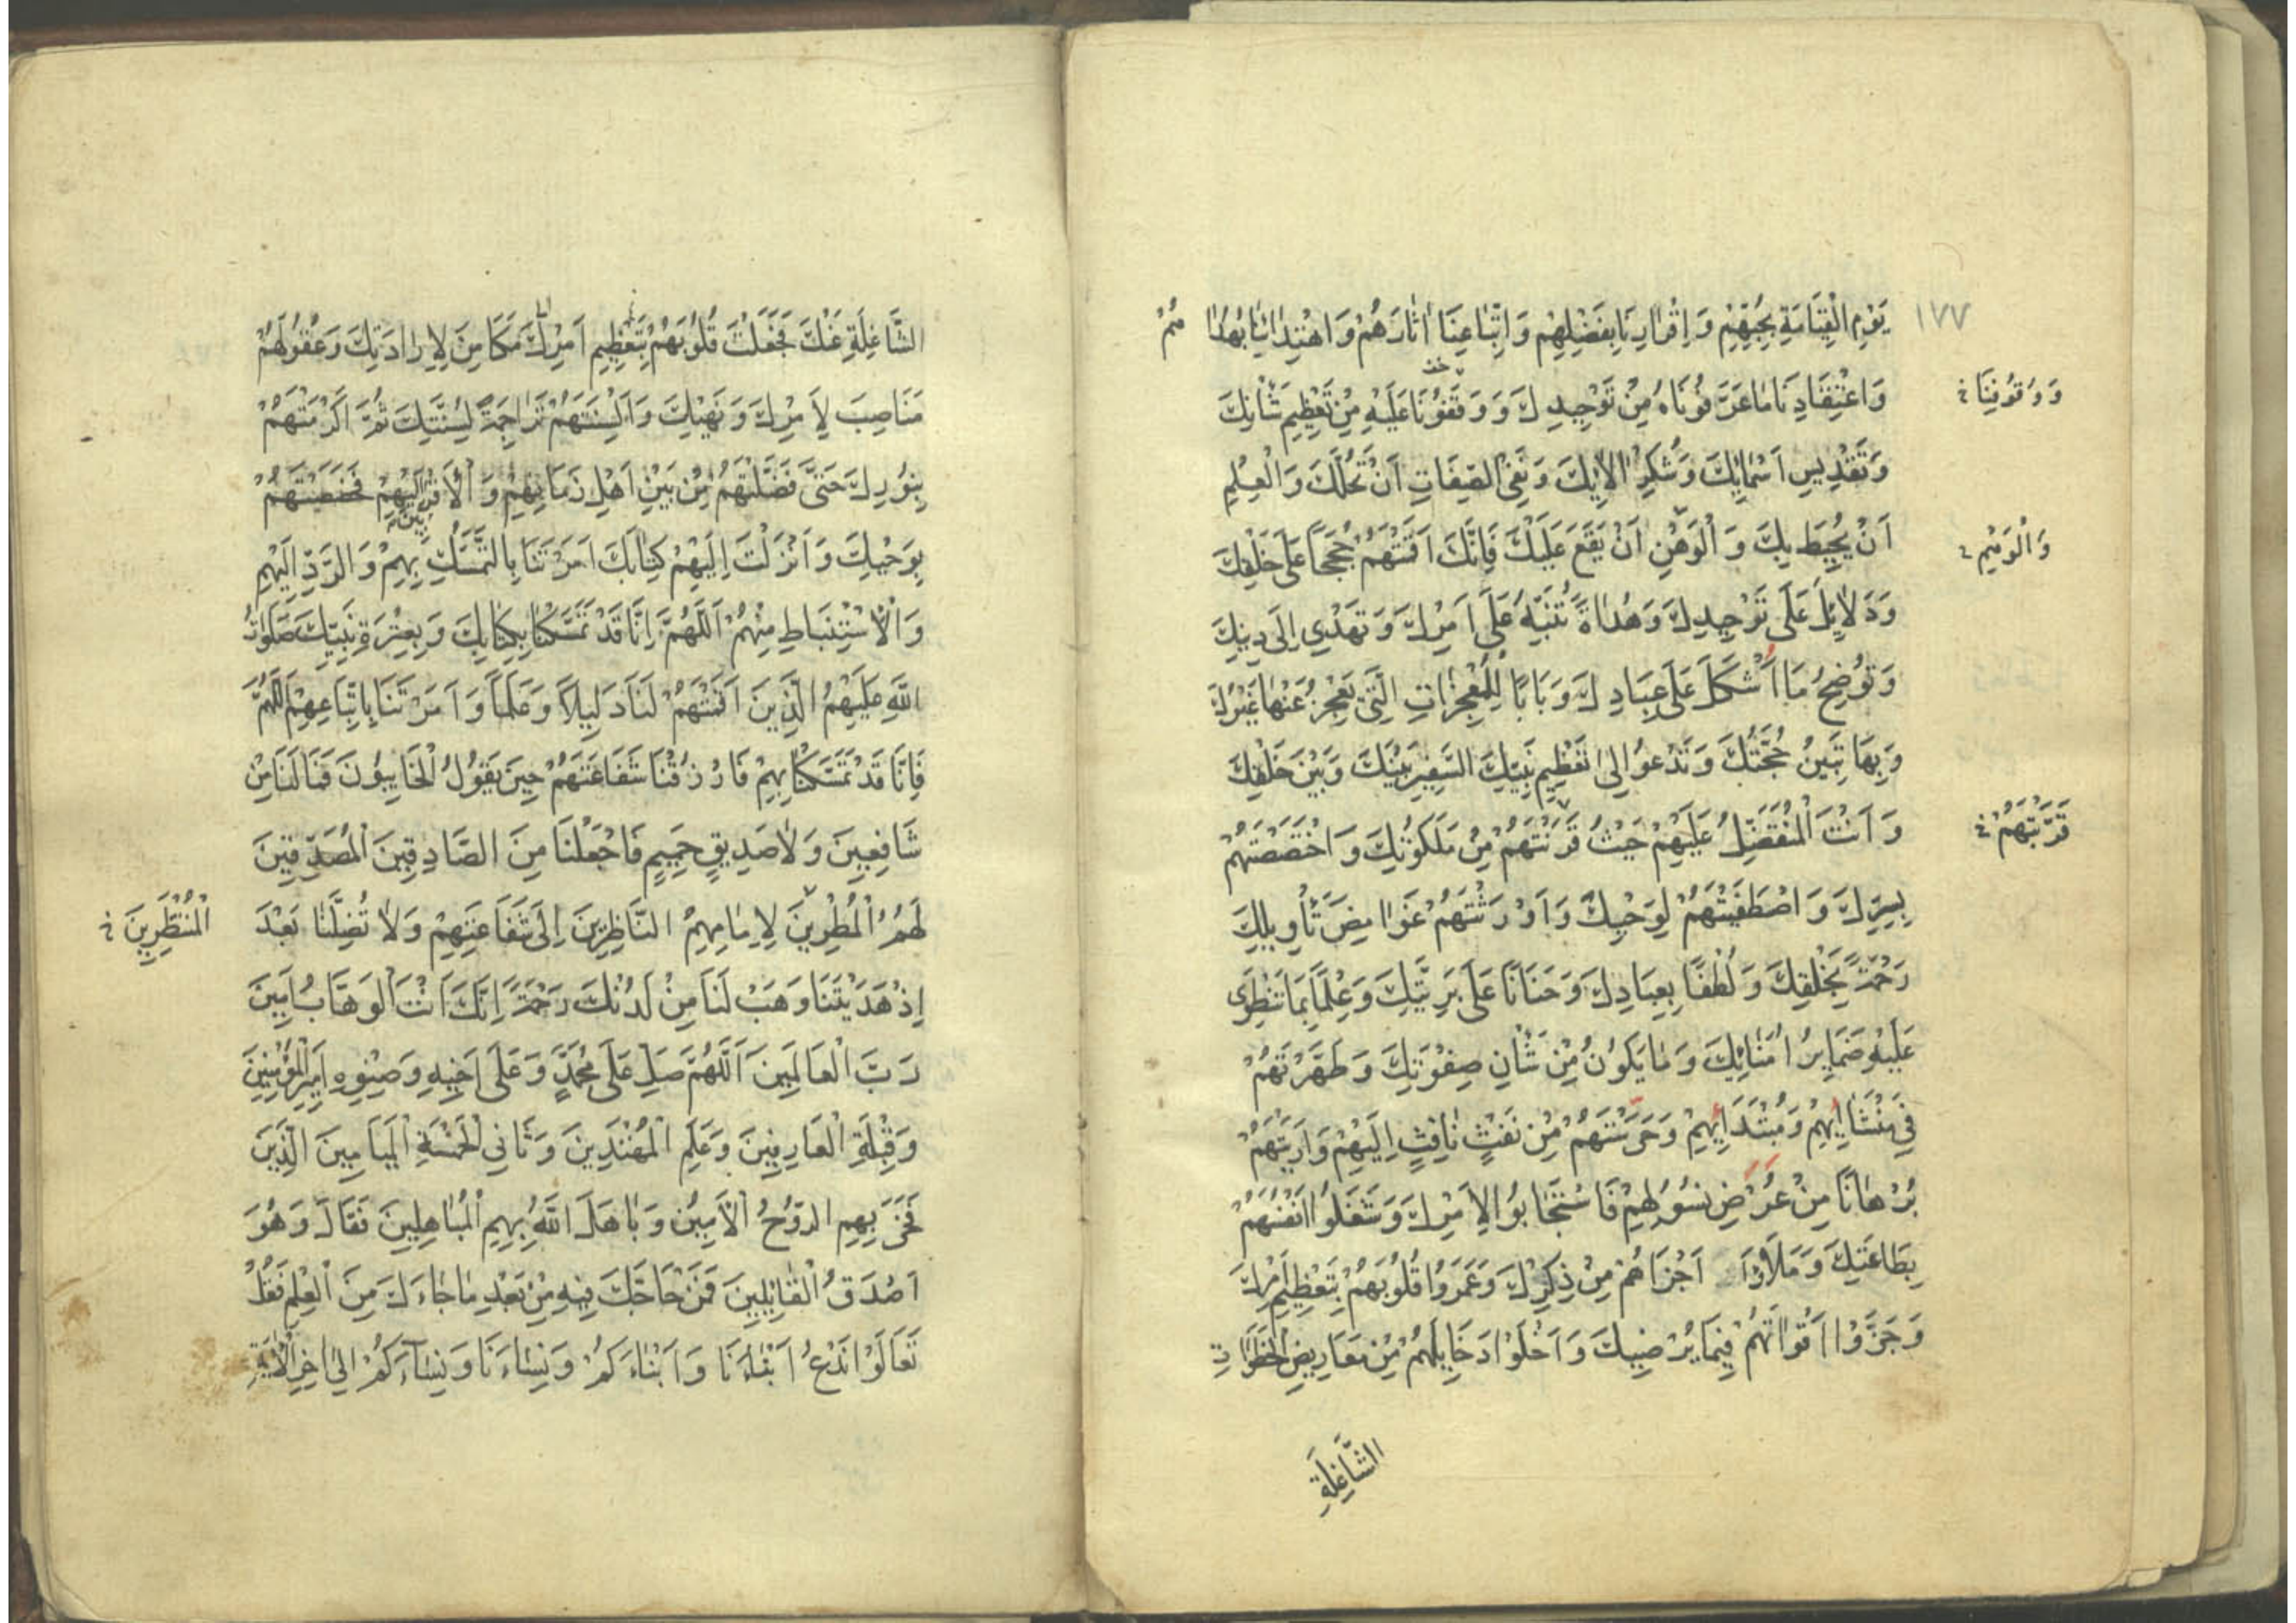 ١٧٧
يَوْمِ الْقِيَامَةِ بِحُبِّهِمْ وَاِقْرَارِنَا بِفَضْلِهِمْ وَاتِّبَاعِنَا اٰثَارَهُمْ وَاهْتِدَائِنَا بِهُدَاهُمْ
وَاعْتِقَادِنَا مَا عَرَّفُونَاهُ مِنْ تَوْحِيدِكَ وَوَقَفُونَا عَلَيْهِ مِنْ تَعْظِيمِ شَأْنِكَ
وَوُقُوفِنَا خ
وَتَقْدِيسِ اَسْمَائِكَ وَشُكْرِ اٰلَائِكَ وَنَفْىِ الصِّفَاتِ اَنْ تَحُلَّكَ وَالْعِلْمِ
اَنْ يُحِيطَ بِكَ وَالْوَهْنِ اَنْ يَقَعَ عَلَيْكَ فَاِنَّكَ اَقَمْتَهُمْ حُجَجًا عَلَى خَلْقِكَ
وَالْوَهْمِ خ
وَدَلَائِلَ عَلَى تَوْحِيدِكَ وَهُدَاةً تُنَبِّهُ عَلَى اَمْرِكَ وَتَهْدِي اِلَى دِينِكَ
وَتُوضِحُ مَا اَشْكَلَ عَلَى عِبَادِكَ وَبَابًا لِلْمُعْجِزَاتِ الَّتِي تَعْجِزُ عَنْهَا غَيْرُكَ
وَبِهَا تَبِينُ حُجَّتُكَ وَتَدْعُو اِلَى تَعْظِيمِ نَبِيِّكَ السَّفِيرِ بَيْنَكَ وَبَيْنَ خَلْقِكَ
وَاَنْتَ الْمُتَفَضِّلُ عَلَيْهِمْ حَيْثُ قَرَنْتَهُمْ مِنْ مَلَكُوتِكَ وَاخْتَصَصْتَهُمْ
قَرَّبْتَهُمْ خ
بِسِرِّكَ وَاصْطَفَيْتَهُمْ لِوَحْيِكَ وَاَوْرَثْتَهُمْ غَوَامِضَ تَأْوِيلِكَ
رَحْمَةً بِخَلْقِكَ وَلُطْفًا بِعِبَادِكَ وَحَنَانًا عَلَى بَرِيَّتِكَ وَعِلْمًا بِمَا تَنْطَوِى
عَلَيْهِ ضَمَايِرُ اُمَنَائِكَ وَمَا يَكُونُ مِنْ شَأْنِ صِفْوَتِكَ وَطَهَّرْتَهُمْ
فِي مَنْشَائِهِمْ وَمُبْتَدَائِهِمْ وَحَرَسْتَهُمْ مِنْ نَفْثِ نَافِثٍ اِلَيْهِمْ وَاَرَيْتَهُمْ
بُرْهَانًا مِنْ عُرْضِ بِسُوءٍ لَهُمْ فَاسْتَجَابُوا لِاَمْرِكَ وَشَغَلُوا اَنْفُسَهُمْ
بِطَاعَتِكَ وَمَلَأُوا اَجْزَاءَهُمْ مِنْ ذِكْرِكَ وَعَمَرُوا قُلُوبَهُمْ بِتَعْظِيمِ اَمْرِكَ
وَجَزَّوْا اَوْقَاتَهُمْ فِيمَا يُرْضِيكَ وَاَخْلَوْا دَخَايِلَهُمْ مِنْ مَعَارِيضِ الْخَطَرَاتِ
الشَّاغِلَةِ
الشَّاغِلَةِ عَنْكَ فَجَعَلْتَ قُلُوبَهُمْ بِتَعْظِيمِ اَمْرِكَ مَكَامِنَ لِاِرَادَتِكَ وَعُقُولَهُمْ
مَنَاصِبَ لِاَمْرِكَ وَنَهْيِكَ وَاَلْسِنَتَهُمْ تَرَاجِمَةً لِسُنَّتِكَ ثُمَّ اَكْرَمْتَهُمْ
بِنُورِكَ حَتَّى فَضَّلْتَهُمْ مِنْ بَيْنِ اَهْلِ زَمَانِهِمْ وَالْاَقْرَبِينَ اِلَيْهِمْ فَخَصَصْتَهُمْ
بِوَحْيِكَ وَاَنْزَلْتَ اِلَيْهِمْ كِتَابَكَ اَمَرْتَنَا بِالتَّمَسُّكِ بِهِمْ وَالرَّدِّ اِلَيْهِمْ
وَالْاِسْتِنْبَاطِ مِنْهُمْ اَللّٰهُمَّ اِنَّا قَدْ تَمَسَّكْنَا بِكِتَابِكَ وَبِعِتْرَةِ نَبِيِّكَ صَلَوَاتُ
اللّٰهِ عَلَيْهِمُ الَّذِينَ اَقَمْتَهُمْ لَنَا دَلِيلًا وَعَلَمًا وَاَمَرْتَنَا بِاتِّبَاعِهِمْ اَللّٰهُمَّ
فَاِنَّا قَدْ تَمَسَّكْنَا بِهِمْ فَارْزُقْنَا شَفَاعَتَهُمْ حِينَ يَقُولُ الْخَائِبُونَ فَمَا لَنَا مِنْ
شَافِعِينَ وَلَا صَدِيقٍ حَمِيمٍ فَاجْعَلْنَا مِنَ الصَّادِقِينَ الْمُصَدِّقِينَ
لَهُمُ الْمُطِرِينَ لِاِمَامِهِمُ النَّاظِرِينَ اِلَى شَفَاعَتِهِمْ وَلَا تُضِلَّنَا بَعْدَ
الْمُنْتَظِرِينَ خ
اِذْ هَدَيْتَنَا وَهَبْ لَنَا مِنْ لَدُنْكَ رَحْمَةً اِنَّكَ اَنْتَ الْوَهَّابُ اٰمِينَ
رَبَّ الْعَالَمِينَ اَللّٰهُمَّ صَلِّ عَلَى مُحَمَّدٍ وَعَلَى اَخِيهِ وَصِنْوِهِ اَمِيرِ الْمُؤْمِنِينَ
وَقِبْلَةِ الْعَارِفِينَ وَعَلَمِ الْمُهْتَدِينَ وَثَانِي الْخَمْسَةِ الْمَيَامِينَ الَّذِينَ
فَخَرَ بِهِمِ الرُّوحُ الْاَمِينُ وَبَاهَلَ اللّٰهُ بِهِمِ الْمُبَاهِلِينَ فَقَالَ وَهُوَ
اَصْدَقُ الْقَائِلِينَ فَمَنْ حَاجَّكَ فِيهِ مِنْ بَعْدِ مَا جَاءَكَ مِنَ الْعِلْمِ فَقُلْ
تَعَالَوْا نَدْعُ اَبْنَاءَنَا وَاَبْنَاءَكُمْ وَنِسَاءَنَا وَنِسَاءَكُمْ اِلَى اٰخِرِ الْاٰيَةِ